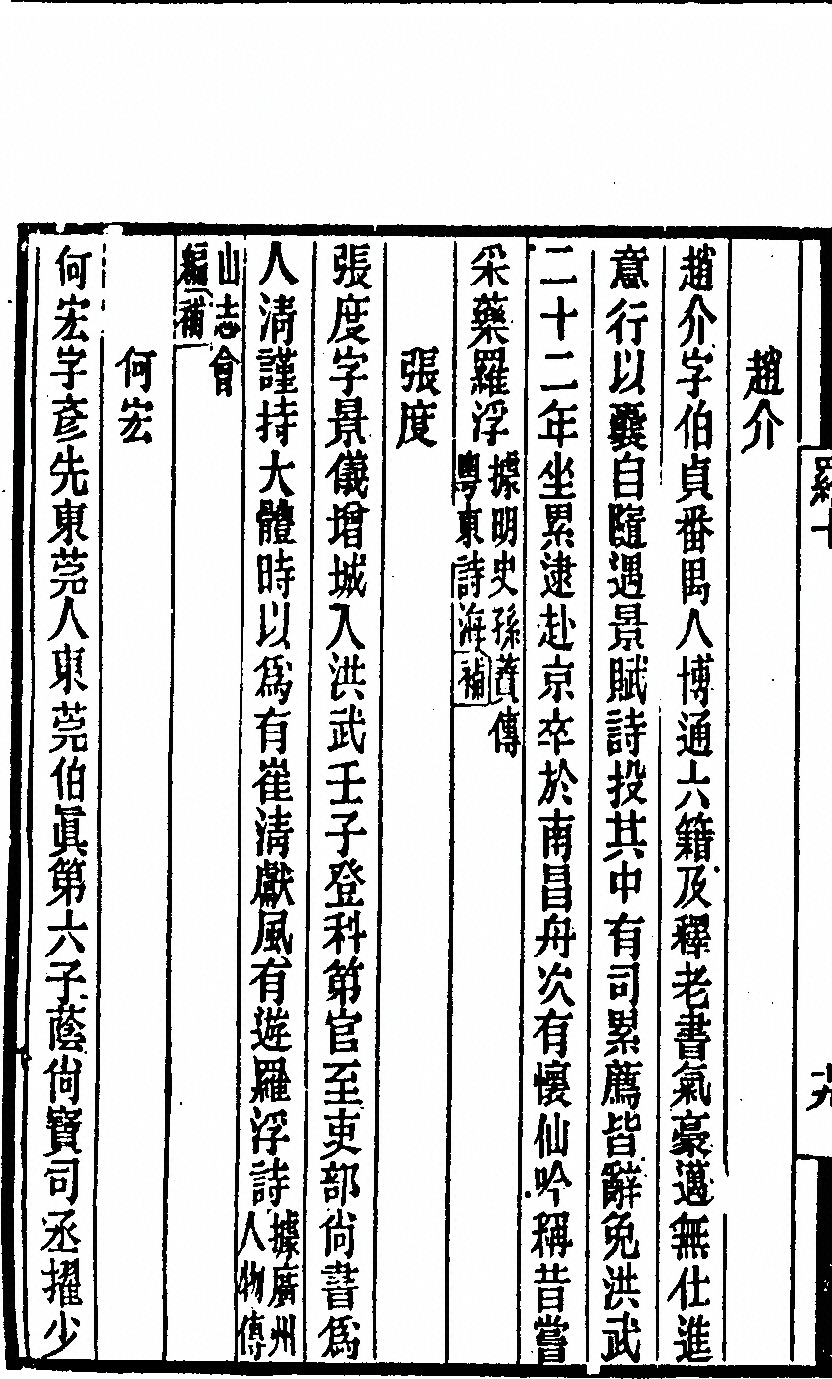 趙介
趙介字伯貞番禺人博通六籍及釋老書氣豪邁無仕進
意行以囊自隨遇景賦詩投其中有司累薦皆辭免洪武
二十二年坐累逮赴京卒於南昌舟次有懷仙吟稱昔嘗
采藥羅浮據明史孫蕡傳
粵東詩海補
張度
張度字景儀增城人洪武壬子登科第官至吏部尙書爲
人淸謹持大體時以爲有崔淸獻風有遊羅浮詩據廣州
人物傳
山志會
編補
何宏
何宏字彥先東莞人東莞伯眞第六子蔭尙寶司丞擢少